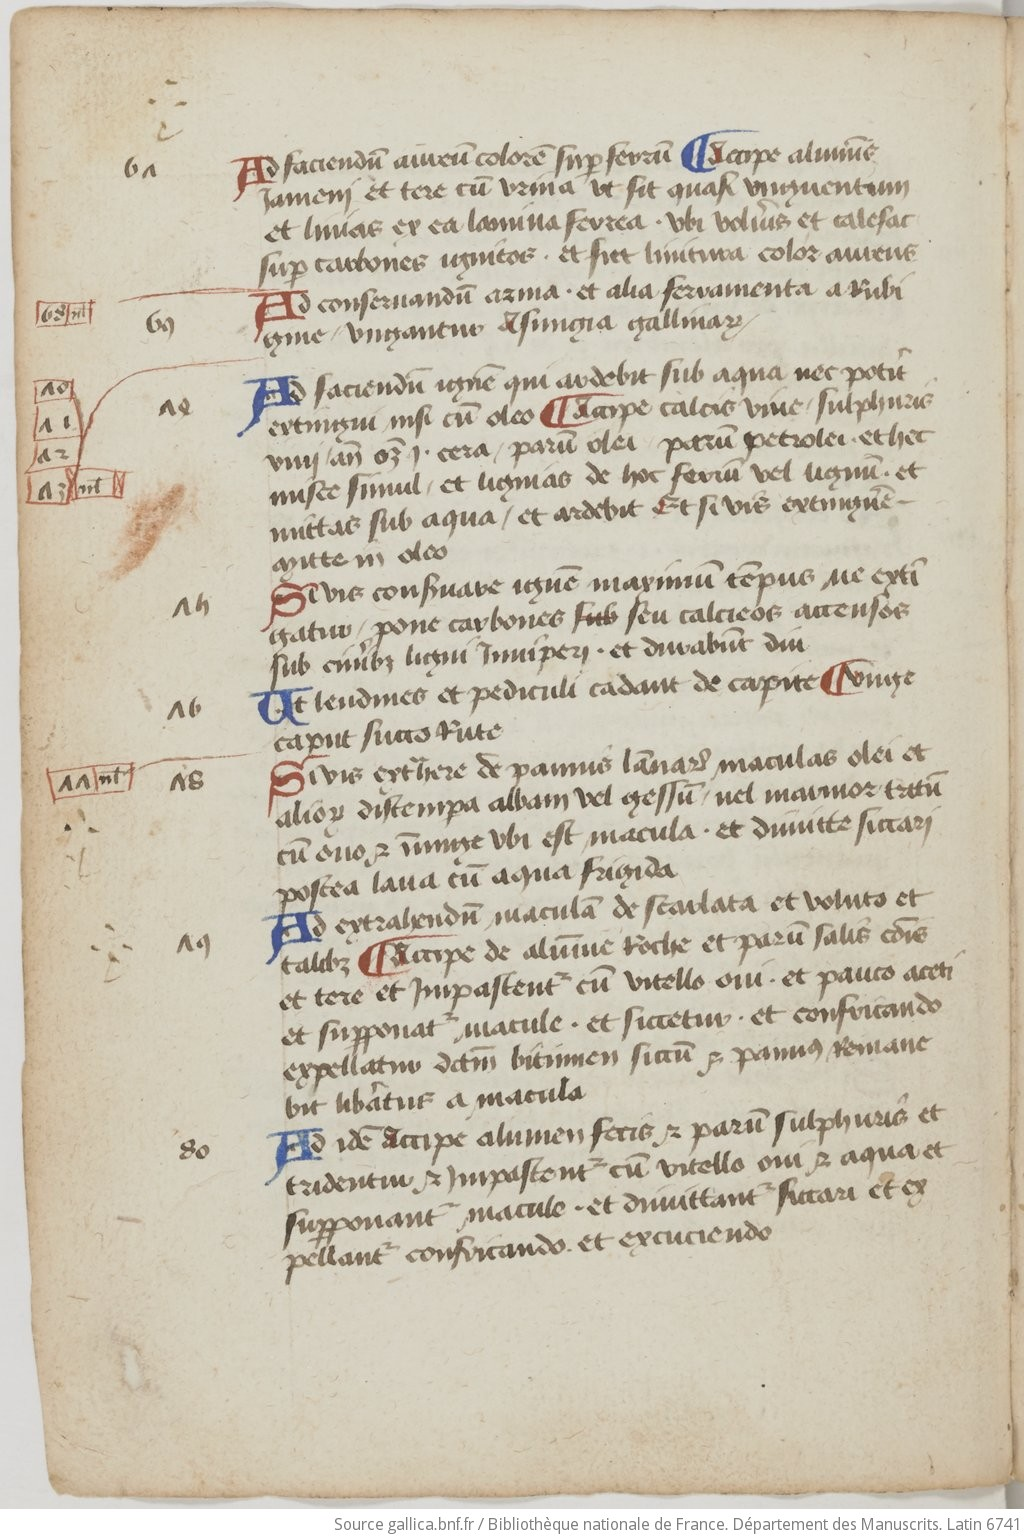 6Λ
Ad faciendū aureū colorē sup ferrū ¶ Accipe aluminis
Jameni et tere cū vrina vt sit quasi vnguentum
et linias ex ea lamina ferrea · vbi voluis et calefac
sup carbones ignitos · et fiet linitura color aureus
68 nl
69
Ad conseruandū arma · et alia ferramenta a Rubi
gine / vngantur Asungia gallinar
Λ0
Λ1
Λ2
Λ3 nl
Λ4
Ad faciendū ignē qui ardebit sub aqua nec potit
extingui nisi cū oleo ¶ Accipe calcis viue / sulphuris
an cera / parū olei parū petrolei · et hec
misce simul / et linias de hoc ferrū vel lignū · et
mittas sub aqua / et ardebit Et si vis extinguē
mitte in oleo
Λ5
Si vis conseruare ignē maximū tēpus ne exti
gatur / pone carbones sub seu calceos accensos
sub cinib ligni Juniperi · et durabūt diu
Λ6
Ut lendines et pediculi cadant de capite ¶ vnge
caput succo Rute
ΛΛ nl
Λ8
Si vis extrhere de pannis lanar maculas olei et
alior distempa albam vel gessū / uel marmor tritū
cū ouo et vnge vbi est macula · et dimitte siccari
postea laua cū aqua frigida
Λ9
Ad extrahendū maculā de scarlata et veluto et
talib ¶ Accipe de alumine Roche et parū salis cōis
et tere et Jmpastent cū vitello oui · et pauco aceti
et supponat macule · et siccetur · et confricando
expellatur dctm bitumen siccū et pannus Remane
bit libatus a macula
80
Ad idē Accipe alumen fecis et parū sulphuris et
tridentur et Jmpastent cū vitello oui et aqua et
supponant macule · et dimittant siccari et ex
pellant confricando · et excuciendo
Source gallica.bnf.fr / Bibliothèque nationale de France. Département des Manuscrits. Latin 6741